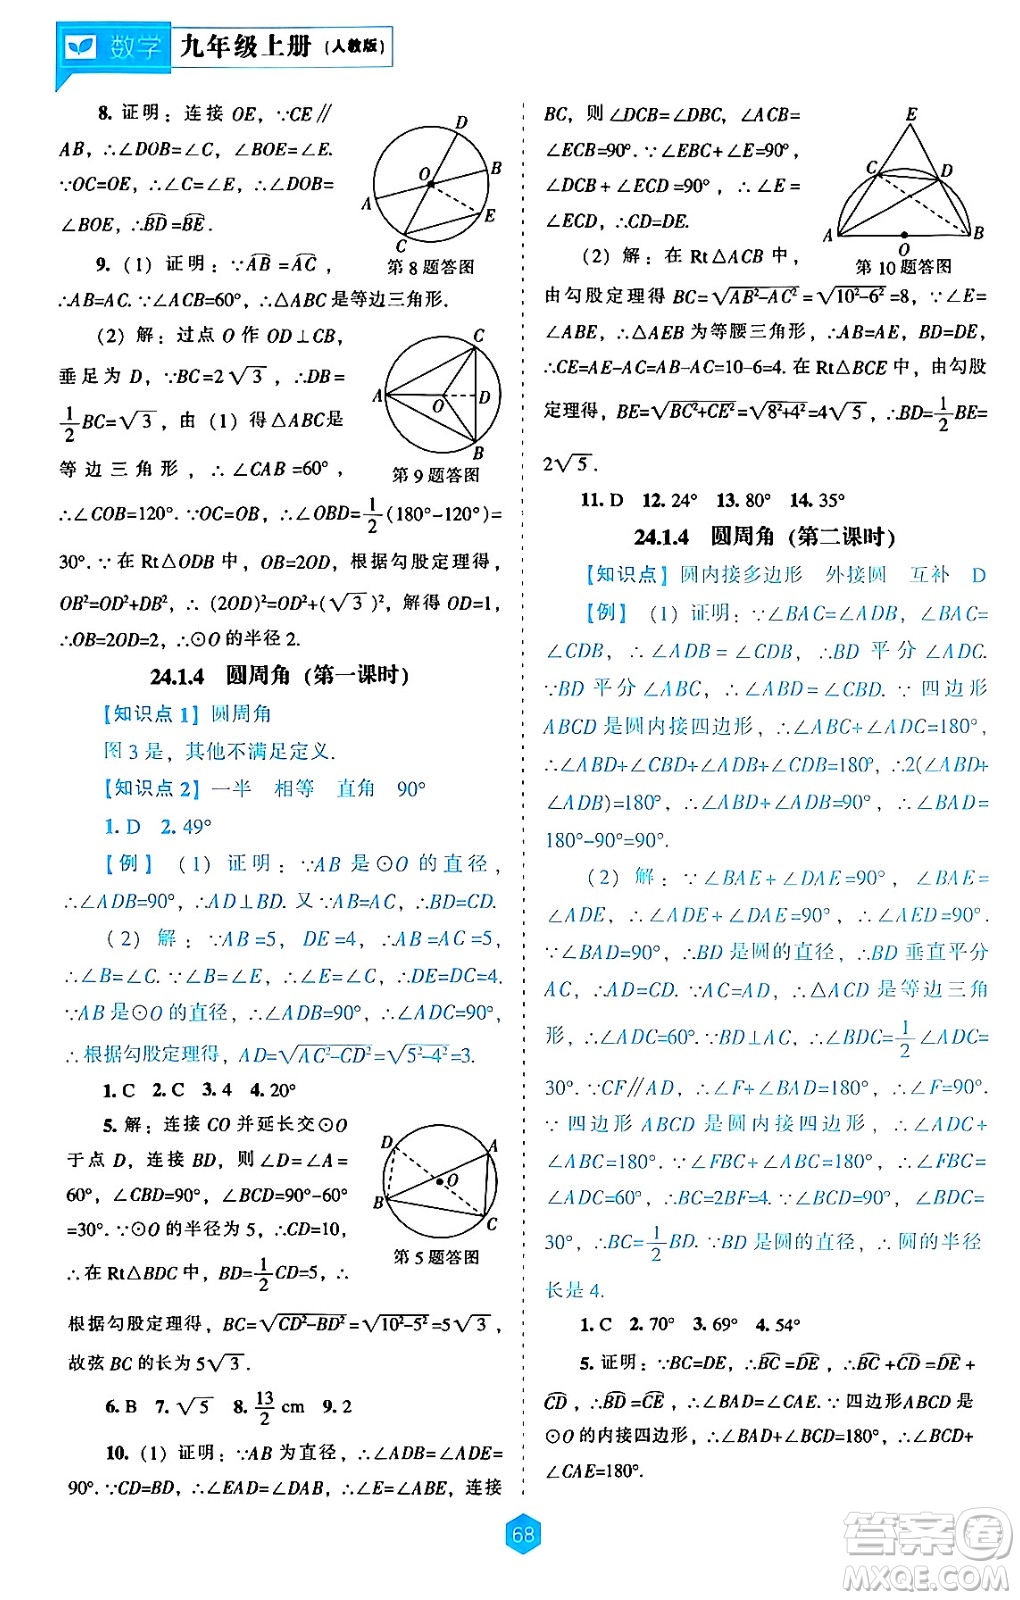 数学 九年级上册 (人教版)
8. 证明：连接 OE，∵CE∥
AB，∴∠DOB=∠C，∠BOE=∠E.
∵OC=OE，∴∠C=∠E，∴∠DOB=
∠BOE，∴BD͡=BE͡.
D
B
O
A
E
C
第 8 题答图
9. (1) 证明：∵AB͡=AC͡，
∴AB=AC. ∵∠C=60°，∴△ABC是等边三角形.
(2) 解：过点 O 作 OD⊥CB，
垂足为 D，∵BC=2√3，∴DB=
1/2BC=√3，由 (1) 得△ABC是
等边三角形，∴∠CAB=60°，
C
A
O
D
B
第 9 题答图
∴∠COB=120°. ∵OC=OB，∴∠OBD=1/2(180°-120°)=
30°. ∵在 Rt△ODB 中，OB=2OD，根据勾股定理得，
OB²=OD²+DB²，∴(2OD)²=OD²+(√3)²，解得 OD=1，
∴OB=2OD=2，∴⊙O 的半径 2.
24.1.4 圆周角 (第一课时)
【知识点 1】圆周角
图 3 是，其他不满足定义.
【知识点 2】一半 相等 直角 90°
1. D 2. 49°
【例】(1) 证明：∵AB 是⊙O 的直径，
∴∠ADB=90°，∴AD⊥BD. 又∵AB=AC，∴BD=CD.
(2) 解：∵AB=5，DE=4，∴AB=AC=5，
∴∠B=∠C. ∵∠B=∠E，∴∠E=∠C，∴DE=DC=4.
∵AB是⊙O的直径，∴∠ADB=90°，∴∠ADC=90°，
∴根据勾股定理得，AD=√(AC²-CD²)=√(5²-4²)=3.
1. C 2. C 3. 4 4. 20°
5. 解：连接 CO 并延长交⊙O
于点 D，连接 BD，则∠D=∠A=
60°，∠CBD=90°，∴∠BCD
=30°. ∵⊙O 的半径为 5，∴CD=10，
∴在 Rt△BDC 中，BD=1/2CD=5，∴
D
A
O
B
C
第 5 题答图
根据勾股定理得，BC=√(CD²-BD²)=√(10²-5²)=5√3，
故弦 BC 的长为 5√3.
6. B 7. √5 8. 13/2 cm 9. 2
10. (1) 证明：∵AB 为直径，∴∠ADB=∠ADE=
90°. ∵CD=BD，∴∠EAD=∠DAB，∴∠E=∠ABE，连接
BC，则∠DCB=∠DBC，∠ACB=
∠ECB=90°. ∵∠EBC+∠E=90°，
∠DCB+∠ECD=90°，∴∠E=
∠ECD，∴CD=DE.
(2) 解：在 Rt△ACB 中，
E
C
D
A
O
B
第 10 题答图
由勾股定理得 BC=√(AB²-AC²)=√(10²-6²)=8，∵∠E=
∠ABE，∴△AEB 为等腰三角形，∴AB=AE，BD=DE，
∴CE=AE-AC=AB-AC=10-6=4. 在 Rt△BCE 中，由勾股
定理得，BE=√(BC²+CE²)=√(8²+4²)=4√5，∴BD=1/2BE=
2√5.
11. D 12. 24° 13. 80° 14. 35°
24.1.4 圆周角 (第二课时)
【知识点】圆内接多边形 外接圆 互补 D
【例】(1) 证明：∵∠BAC=∠ADB，∠BAC=
∠CDB，∴∠ADB=∠CDB，∴BD 平分∠ADC.
∵BD 平分∠ABC，∴∠ABD=∠CBD. ∵四边形
ABCD 是圆内接四边形，∴∠ABC+∠ADC=180°，
∴∠ABD+∠CBD+∠ADB+∠CDB=180°，∴2(∠ABD+
∠ADB)=180°，∴∠ABD+∠ADB=90°，∴∠BAD=
180°-90°=90°.
(2) 解：∵∠BAE+∠DAE=90°，∠BAE=
∠ADE，∴∠ADE+∠DAE=90°，∴∠AED=90°.
∵∠BAD=90°，∴BD 是圆的直径，∴BD 垂直平分
AC，∴AD=CD. ∵AC=AD，∴△ACD 是等边三角
形，∴∠ADC=60°. ∵BD⊥AC，∴∠BDC=1/2∠ADC=
30°. ∵CF∥AD，∴∠F+∠BAD=180°，∴∠F=90°.
∵四边形 ABCD 是圆内接四边形，∴∠ADC+
∠ABC=180°. ∵∠FBC+∠ABC=180°，∴∠FBC=
∠ADC=60°，∴BC=2BF=4. ∵∠BCD=90°，∠BDC=
30°，∴BC=1/2BD. ∵BD 是圆的直径，∴圆的半径
长是 4.
1. C 2. 70° 3. 69° 4. 54°
5. 证明：∵BC=DE，∴BC͡=DE͡，∴BC͡+CD͡=DE͡+
CD͡，∴BD͡=CE͡，∴∠BAD=∠CAE. ∵四边形ABCD是
⊙O 的内接四边形，∴∠BAD+∠BCD=180°，∴∠BCD+
∠CAE=180°.
68
答案圈
MXQE.COM